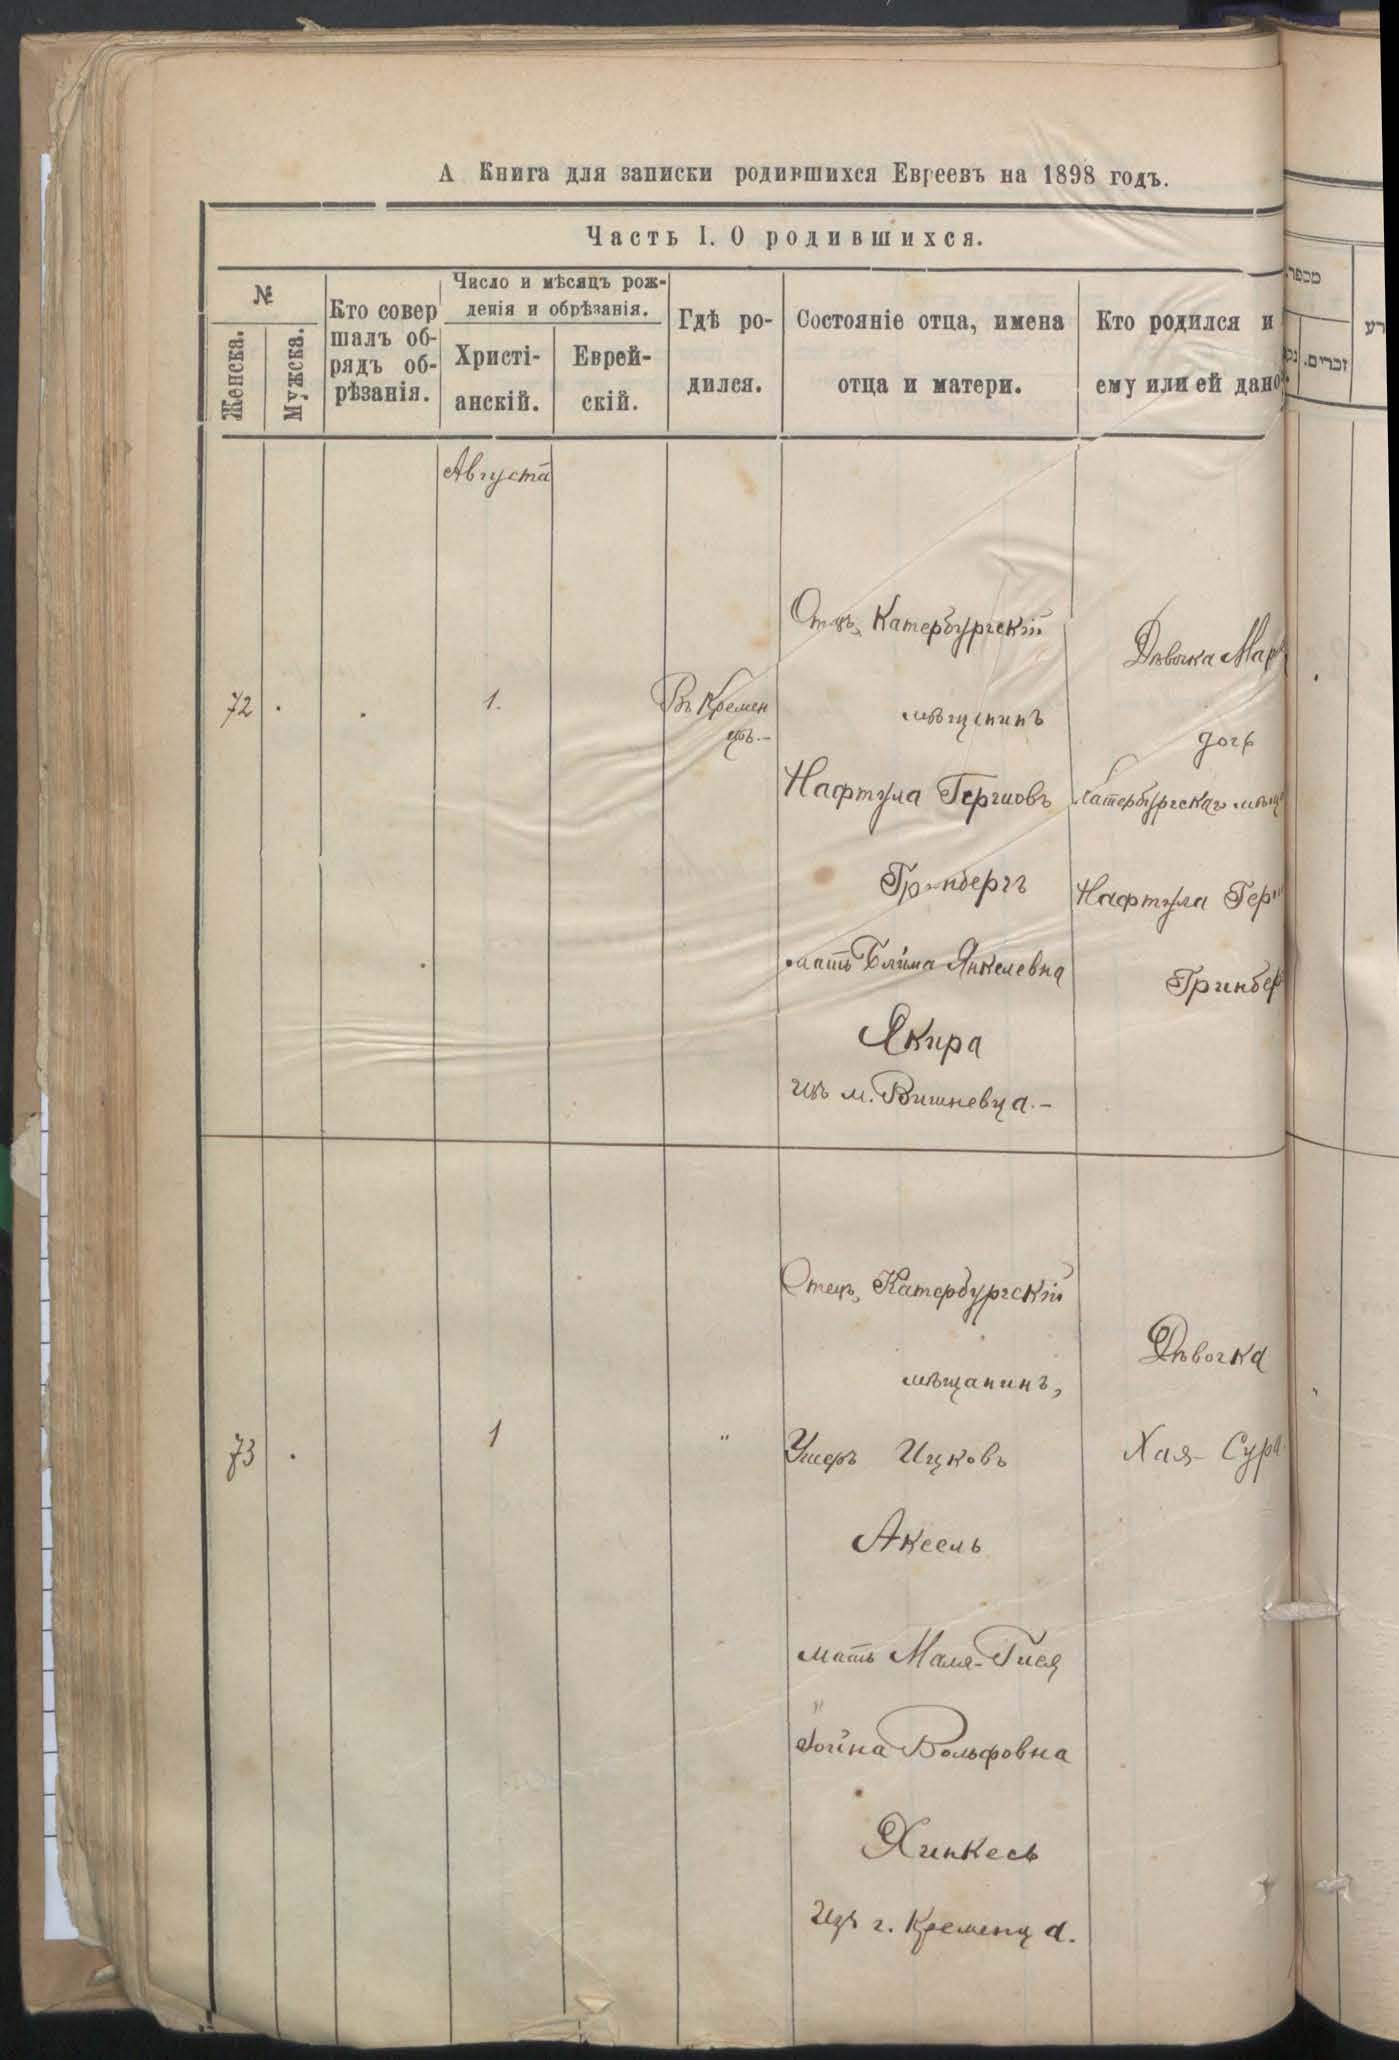 А Книга для записки родившихся Евреевъ на 1898 годъ.
Часть I. О родившихся.
№
Женска.
Мужска.
Кто совер
шалъ об-
рядъ об-
рѣзанія.
Число и мѣсяцъ рож-
денія и обрѣзанія.
Христі-
анскій.
Еврей-
скій.
Гдѣ ро-
дился.
Состояніе отца, имена
отца и матери.
Кто родился и
ему или ей дано
מספר
זכרים.
Августа
72
1.
Въ Кремен
цѣ.-
Отецъ, Катербургскій
мѣщанинъ
Нафтула Гершовъ
Гринбергъ
мать Блима Янкелевна
Якира
изъ м. Вишневца.-
Дѣвочка Мар
дочь
Катербургскаго мѣщ
Нафтула Герш
Гринбер
73
1
"
Отецъ, Катербургскій
мѣщанинъ,
Ушеръ Ицковъ
Аксель
мать Маля-Гися
Вольфовна
Хинкесъ
Изъ г. Кременца.
Дѣвочка
Хая-Сура